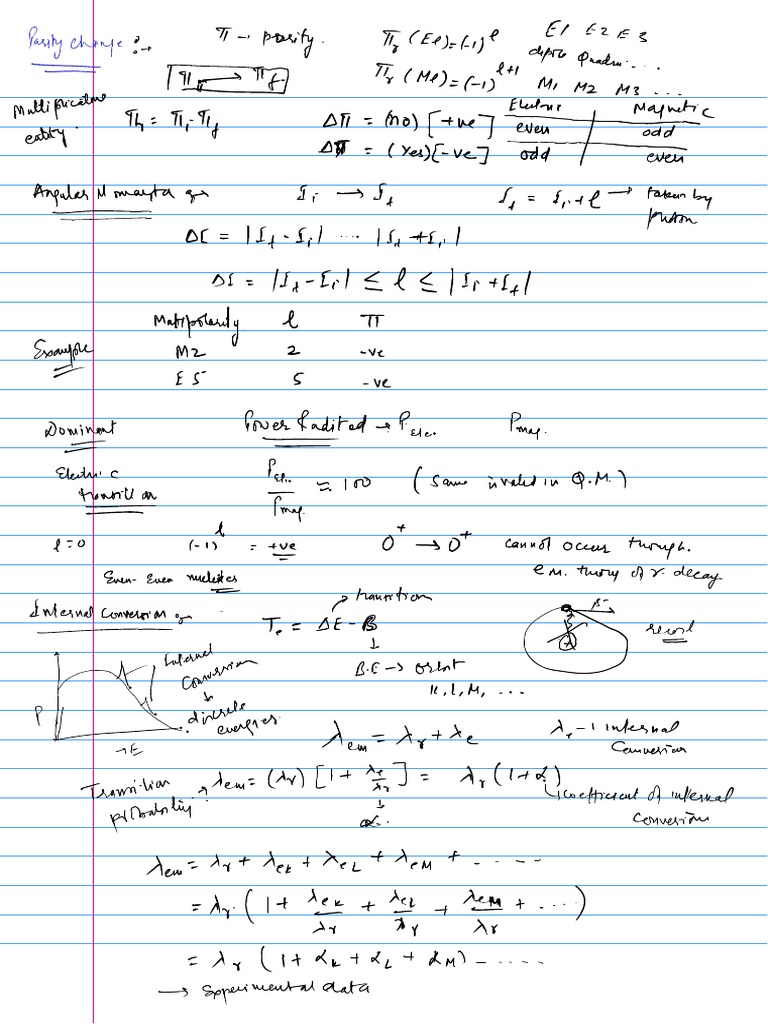 Parity change :→ π → parity. π_γ (El) = (-1)^l E1 E2 E3
dipole Quadru....
π_i → π_f π_γ (Ml) = (-1)^{l+1} M1 M2 M3 ...
Electric Magnetic
Multiplicative entity. π_γ = π_i · π_f Δπ = (no) [+ve] even odd
Δπ = (Yes) [-ve] odd even
Angular Momenta I_i → I_f I_f = I_i + l → taken by photon
ΔI = |I_f - I_i| ... |I_f + I_i|
ΔI = |I_f - I_i| ≤ l ≤ |I_i + I_f|
Multipolarity l π
Example M2 2 -ve
E5 5 -ve
Dominant Power Radited → P_Ele. P_mag.
Electric transition P_El./P_mag. ≈ 100 (Same in Q.M.)
l=0 (-1)^l = +ve 0^+ → 0^+ cannot occur through.
e.m. theory of γ. decay
Even-Even
Internal Conversion T_e = ΔE - B → transition
B.E → orbit
K, L, M, ...
β^-
Internal Conversion ↓ discrete energies.
P → E
λ_em = λ_γ + λ_e λ_e → internal Conversion
Transition probability → λ_em = (λ_γ) [1 + λ_e/λ_γ] = λ_γ (1 + α) → coefficient of internal Conversion
α.
λ_em = λ_γ + λ_eK + λ_eL + λ_eM + .....
= λ_γ. (1 + λ_eK/λ_γ + λ_eL/λ_γ + λ_eM/λ_γ + ....)
= λ_γ (1 + α_K + α_L + α_M) .....
→ Experimental data